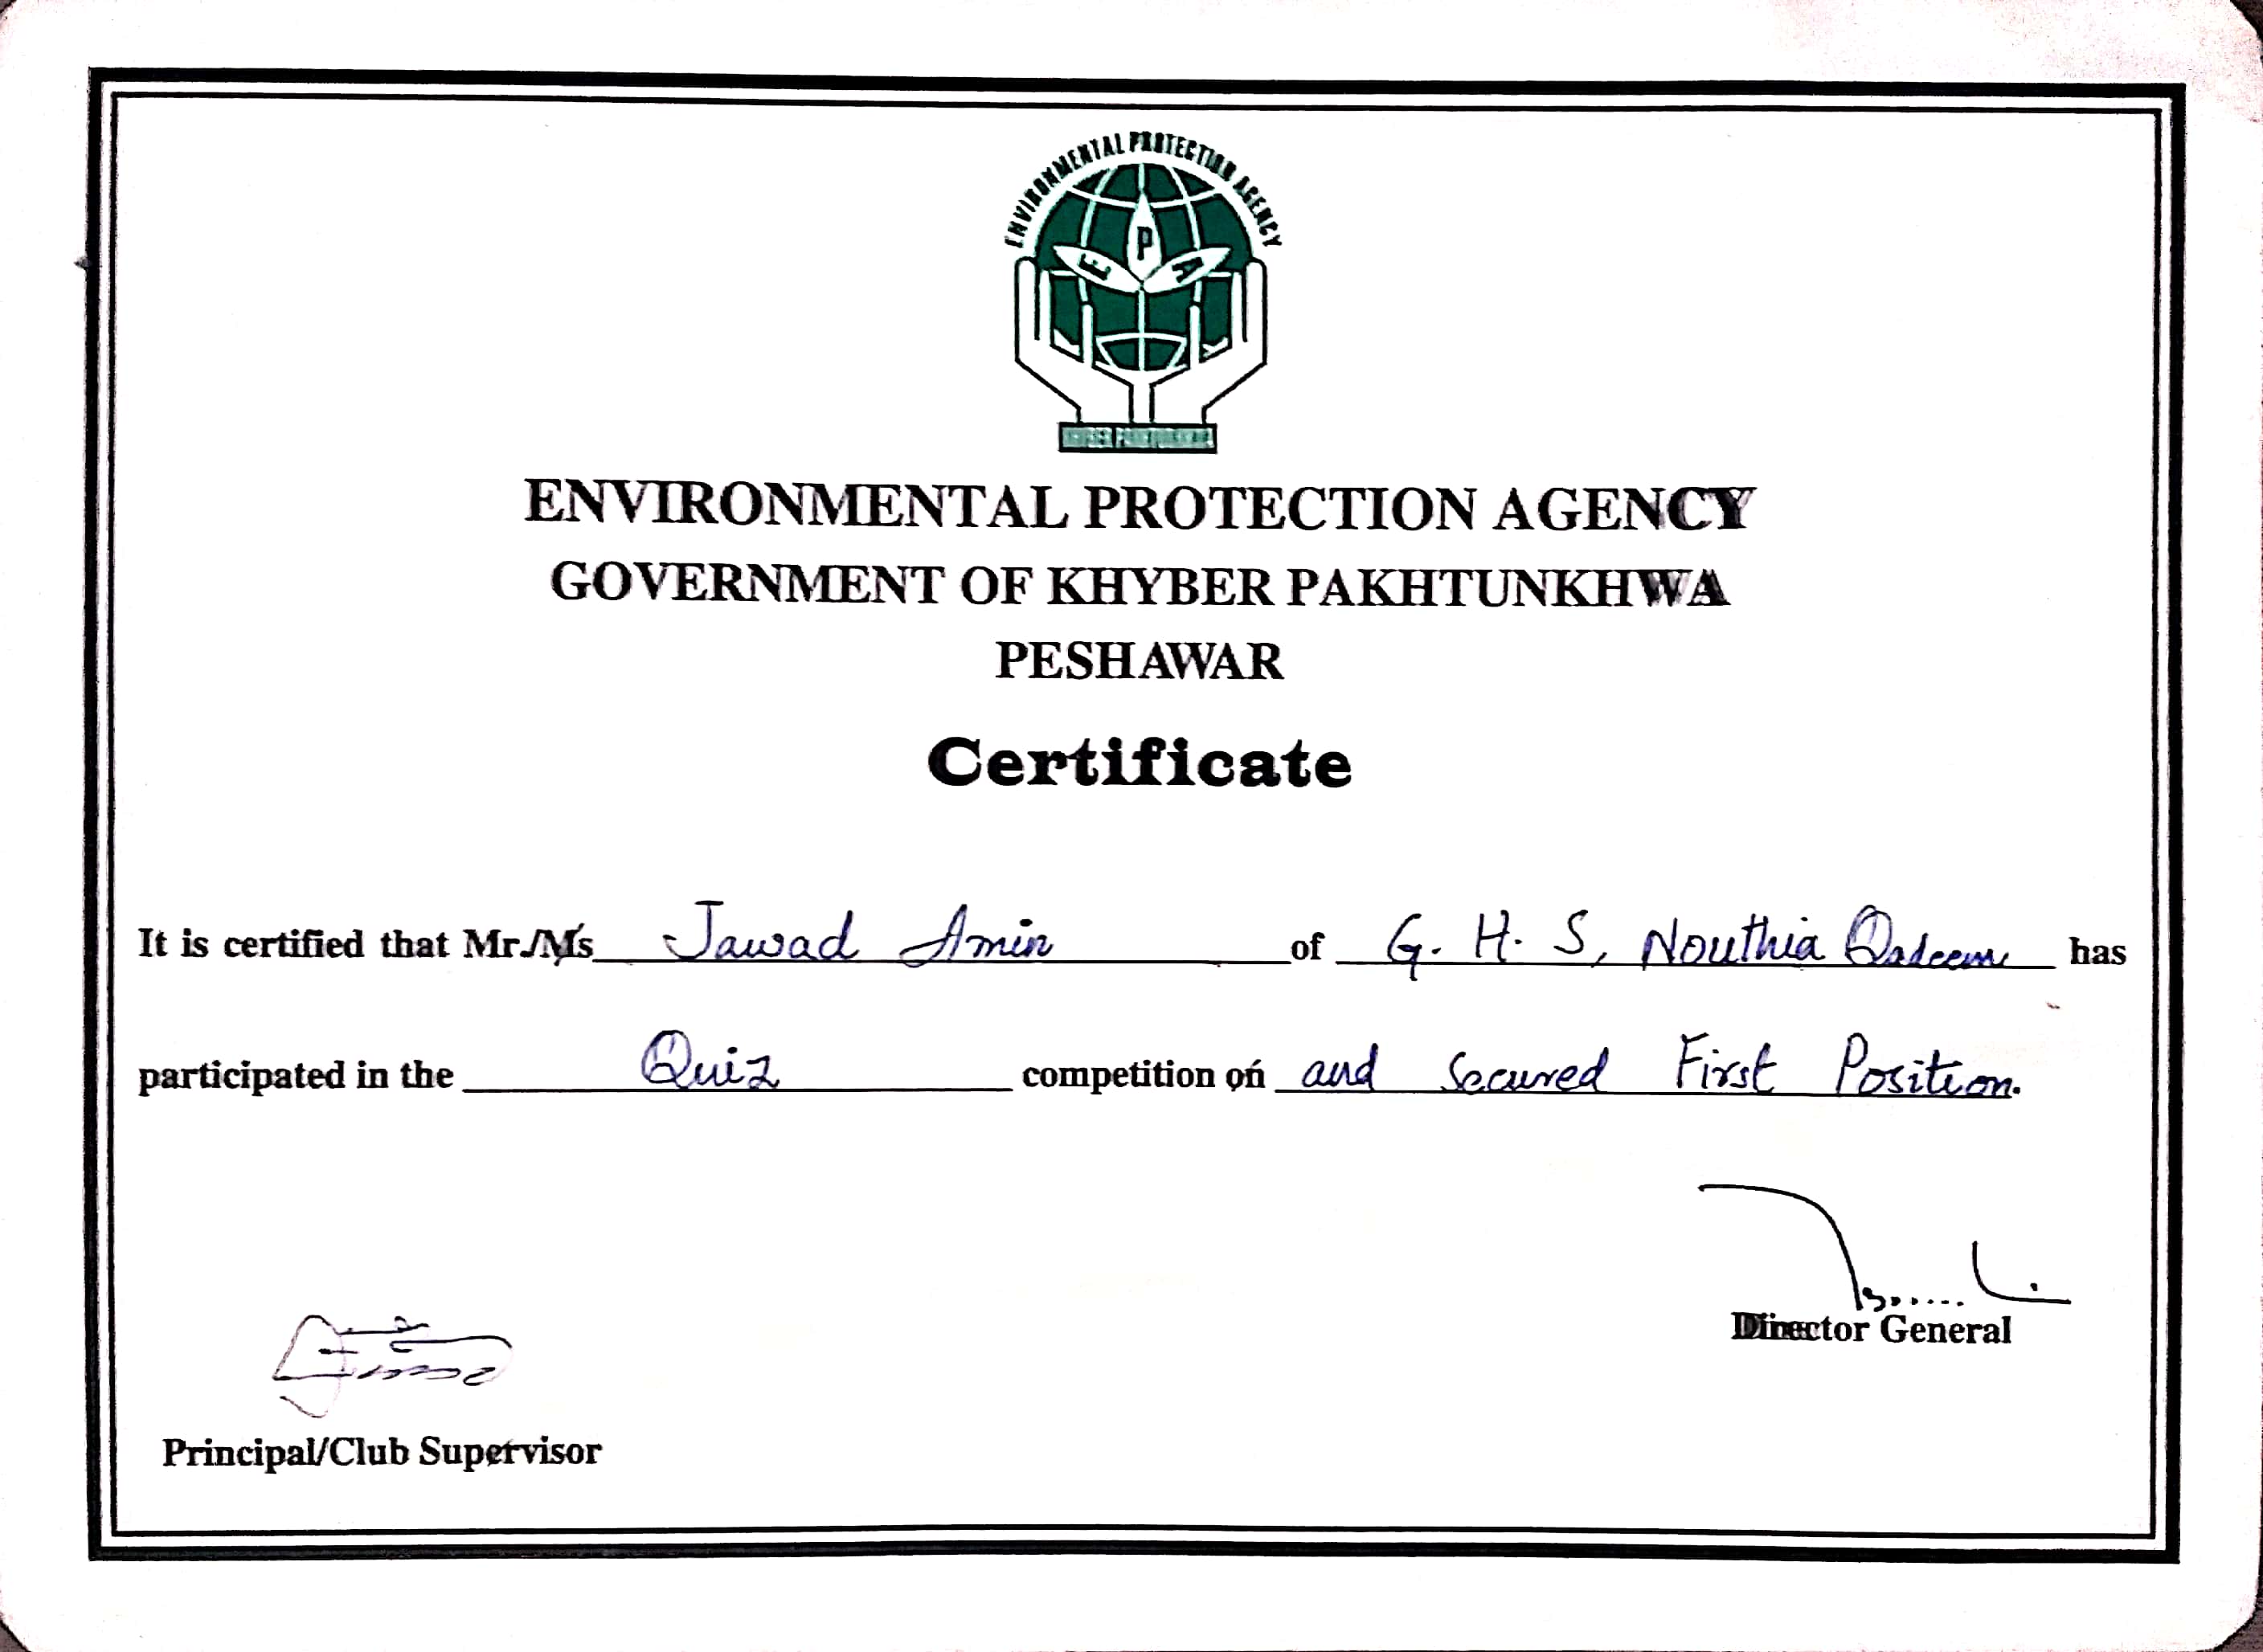 ENVIRONMENTAL PROTECTION AGENCY
E P A
KHYBER PAKHTUNKHWA
ENVIRONMENTAL PROTECTION AGENCY
GOVERNMENT OF KHYBER PAKHTUNKHWA
PESHAWAR
Certificate
It is certified that Mr./Ms Jawad Amin of G. H. S, Nouthia Qadeem has
participated in the Quiz competition on and secured First Position.
Director General
Principal/Club Supervisor